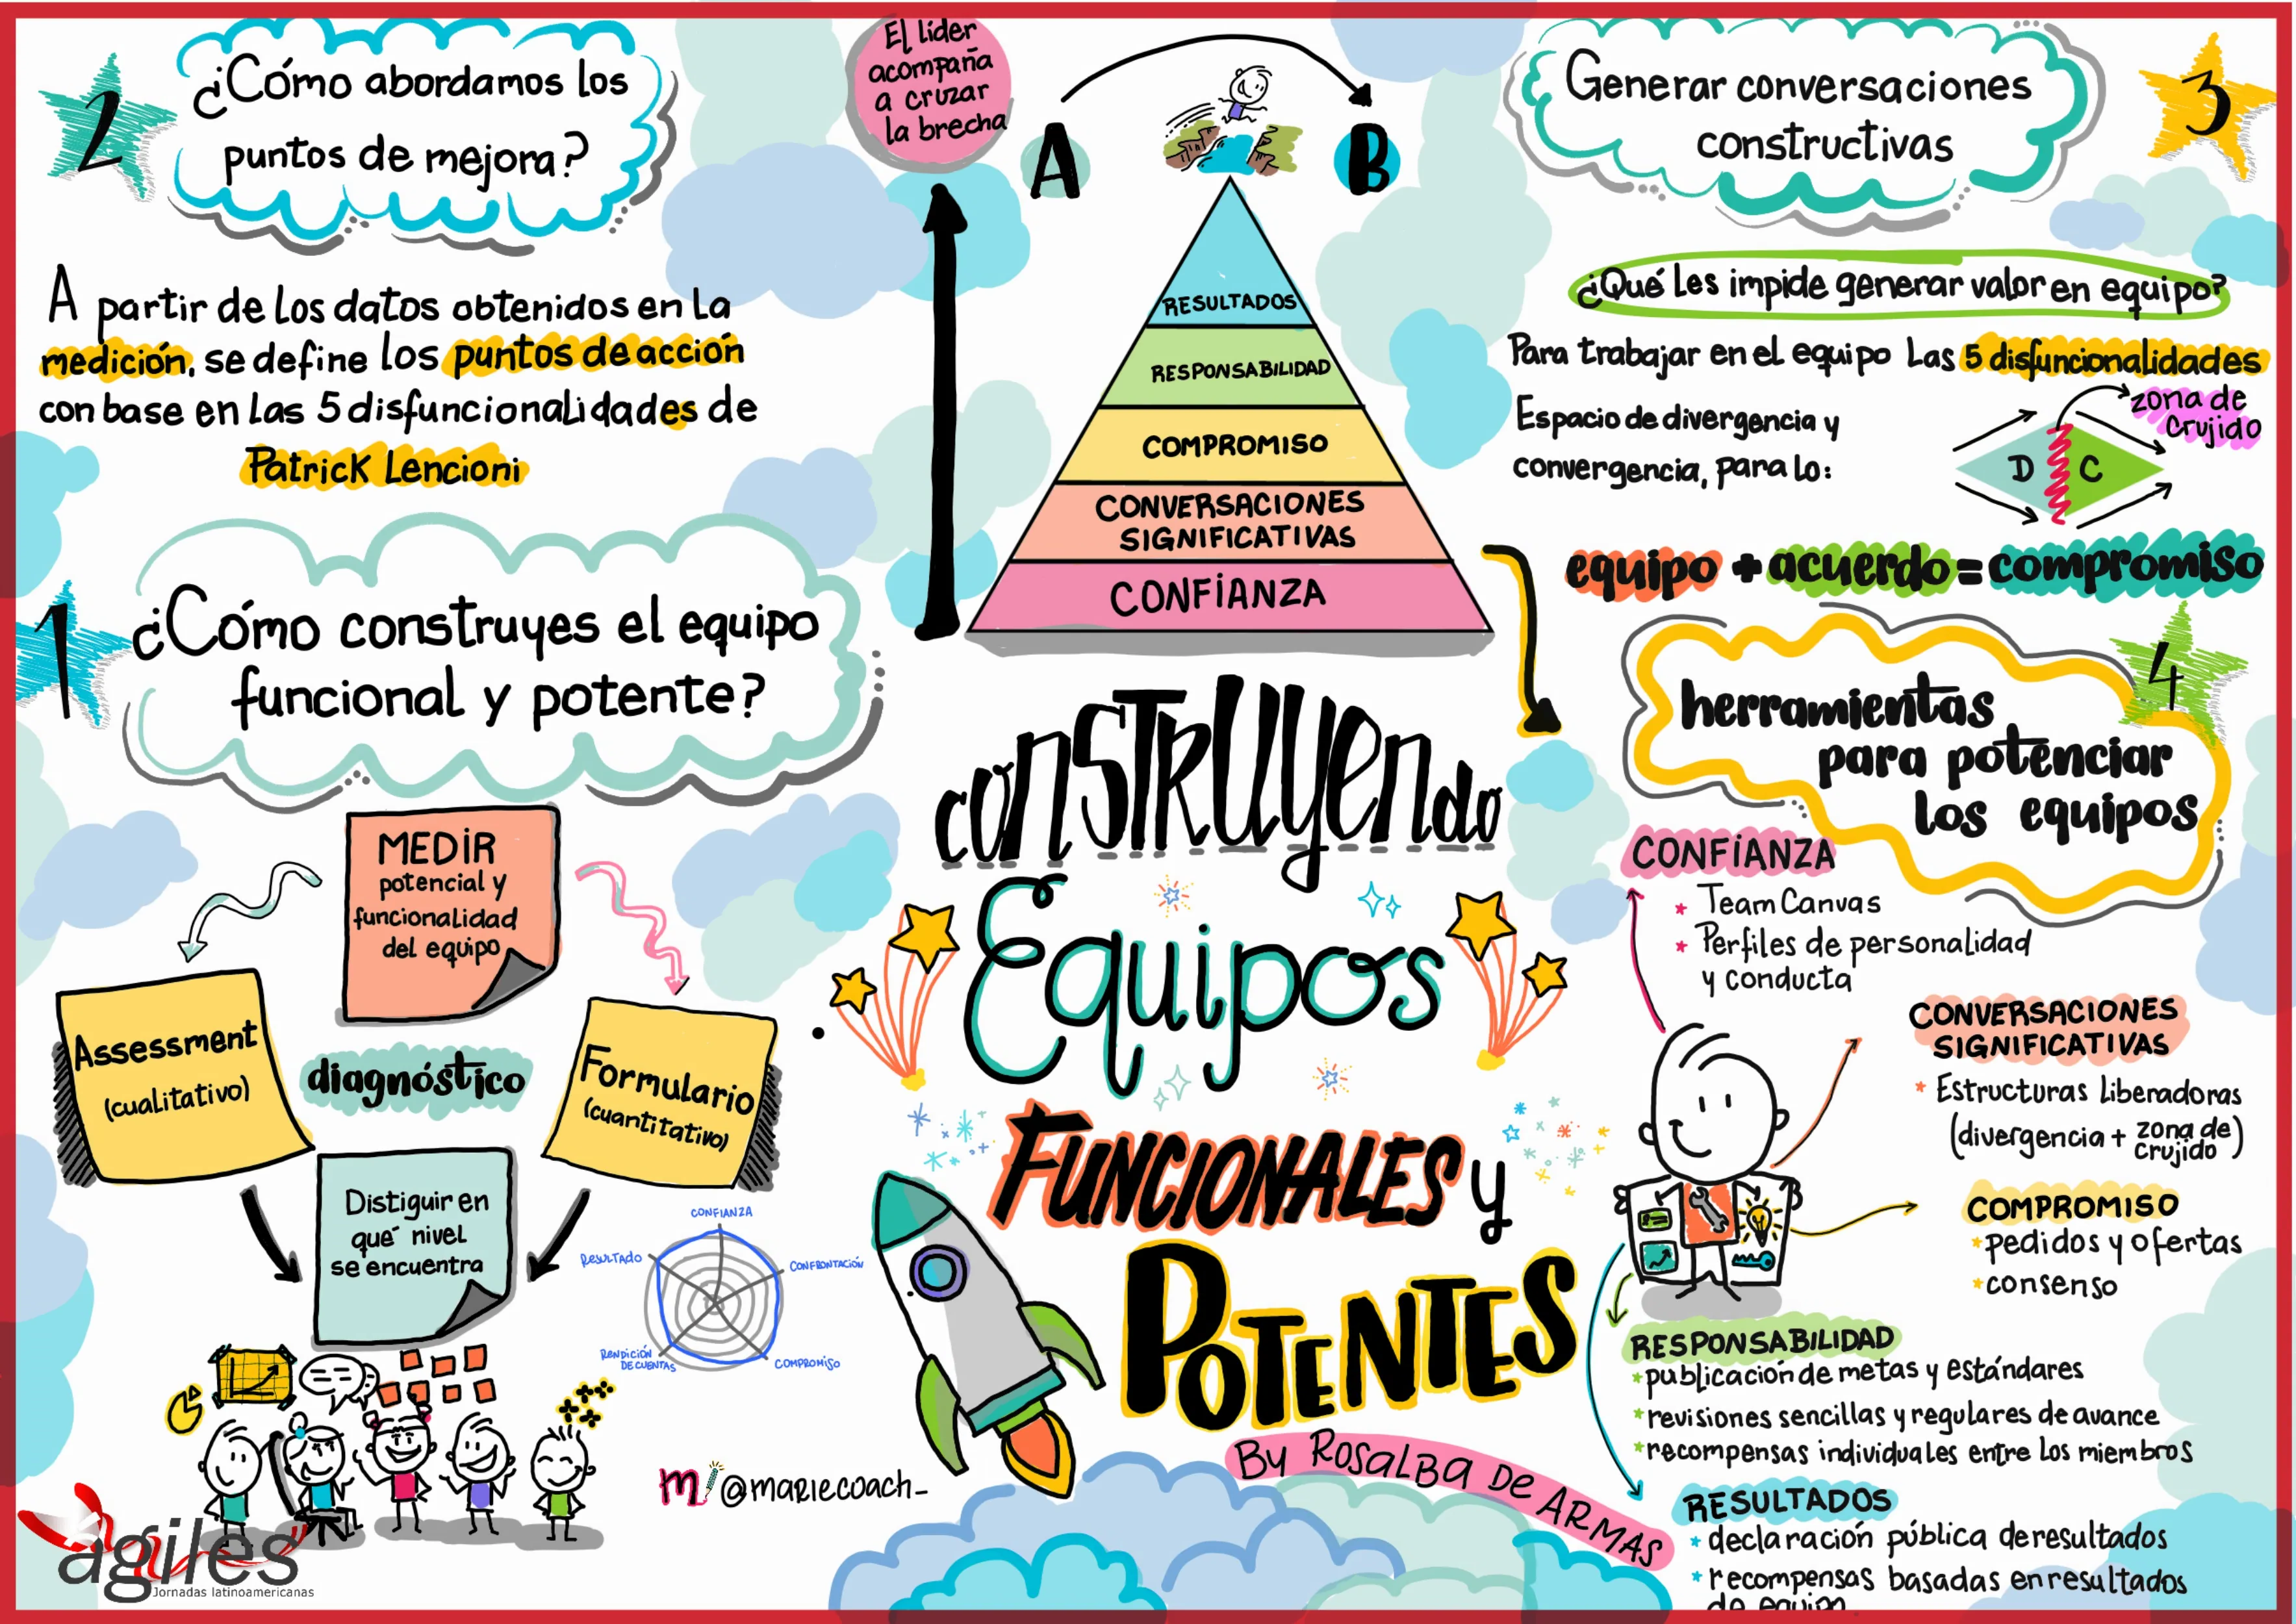 2
¿Cómo abordamos los
puntos de mejora?
A partir de los datos obtenidos en la
medición, se define los puntos de acción
con base en las 5 disfuncionalidades de
Patrick Lencioni
1
¿Cómo construyes el equipo
funcional y potente?
MEDIR
potencial y
funcionalidad
del equipo
Assessment
(cualitativo)
diagnóstico
Formulario
(cuantitativo)
Distiguir en
qué nivel
se encuentra
CONFIANZA
CONFRONTACIÓN
COMPROMISO
RENDICIÓN
DE CUENTAS
RESULTADO
agiles
Jornadas latinoamericanas
m @mariecoach_
El líder
acompaña
a cruzar
la brecha
A
B
RESULTADOS
RESPONSABILIDAD
COMPROMISO
CONVERSACIONES
SIGNIFICATIVAS
CONFIANZA
CONSTRUYENdo
Equipos
FUNCIONALES y
POTENTES
By ROSALBA DE ARMAS
3
Generar conversaciones
constructivas
¿Qué les impide generar valor en equipo?
Para trabajar en el equipo las 5 disfuncionalidades
Espacio de divergencia y
convergencia, para lo:
zona de
crujido
D C
equipo + acuerdo = compromiso
4
herramientas
para potenciar
los equipos
CONFIANZA
* Team Canvas
* Perfiles de personalidad
y conducta
CONVERSACIONES
SIGNIFICATIVAS
* Estructuras liberadoras
(divergencia + zona de
crujido)
COMPROMISO
* pedidos y ofertas
* consenso
RESPONSABILIDAD
* publicación de metas y estándares
* revisiones sencillas y regulares de avance
* recompensas individuales entre los miembros
RESULTADOS
* declaración pública de resultados
* recompensas basadas en resultados
de equipo